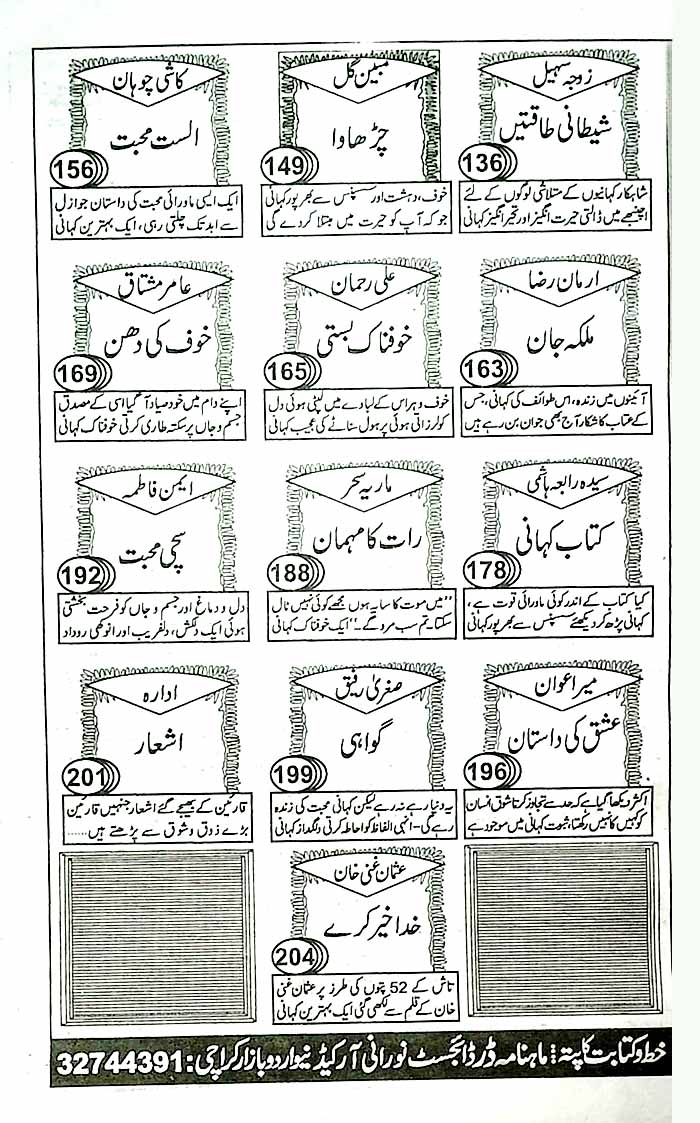 زوجہ سہیل
شیطانی طاقتیں
136
شاہکار کہانیوں کے متلاشی لوگوں کے لئے
اچنبھے میں ڈالتی حیرت انگیز اور تحیر انگیز کہانی
مبین گل
چڑھاوا
149
خوف، دہشت اور سسپنس سے بھرپور کہانی
جو کہ آپ کو حیرت میں مبتلا کردے گی
کاشی چوہان
الست محبت
156
ایک ایسی ماورائی محبت کی داستان جو ازل
سے ابد تک چلتی رہی، ایک بہترین کہانی
ارمان رضا
ملکہ جان
163
آئینوں میں زندہ، اس طوائف کی کہانی، جس
کے عتاب کا شکار آج بھی جوان بن رہے ہیں
علی رحمان
خوفناک بستی
165
خوف و ہراس کے لبادے میں لپٹی ہوئی دل
کو لرزاتی ہوئی پر ہول سناٹے کی عجیب کہانی
عامر مشتاق
خوف کی دھن
169
اپنے دام میں خود صیاد آ گیا اسی کے مصدق
جسم و جاں پر سکتہ طاری کرتی خوفناک کہانی
سیدہ رابعہ ہاشمی
کتاب کہانی
178
کیا کتاب کے اندر کوئی ماورائی قوت ہے،
کہانی پڑھ کر دیکھئے سسپنس سے بھرپور کہانی
ماریہ سحر
رات کا مہمان
188
”میں موت کا سایہ ہوں مجھے کوئی نہیں ٹال
سکتا۔ تم سب مرو گے۔“ ایک خوفناک کہانی
ایمن فاطمہ
سچی محبت
192
دل و دماغ اور جسم و جاں کو فرحت بخشتی
ہوئی ایک دلکش، دلفریب اور انوکھی روداد
میرا عوان
عشق کی داستان
196
اکثر دیکھا گیا ہے کہ حد سے تجاوز کرتا شوق انسان
کو کہیں کا نہیں رکھتا، ثبوت کہانی میں موجود ہے
صغریٰ رفیق
گواہی
199
یہ دنیا رہے نہ رہے لیکن کہانی محبت کی زندہ
رہے گی۔ انہی الفاظ کو احاطہ کرتی دلگداز کہانی
ادارہ
اشعار
201
قارئین کے بھیجے گئے اشعار جنہیں قارئین
بڑے ذوق و شوق سے پڑھتے ہیں.....
عثمان غنی خان
خدا خیر کرے
204
تاش کے 52 پتوں کی طرز پر عثمان غنی
خان کے قلم سے لکھی گئی ایک بہترین کہانی
خط و کتابت کا پتہ: ماہنامہ ڈر ڈائجسٹ نورانی آرکیڈ نیو اردو بازار کراچی: 32744391